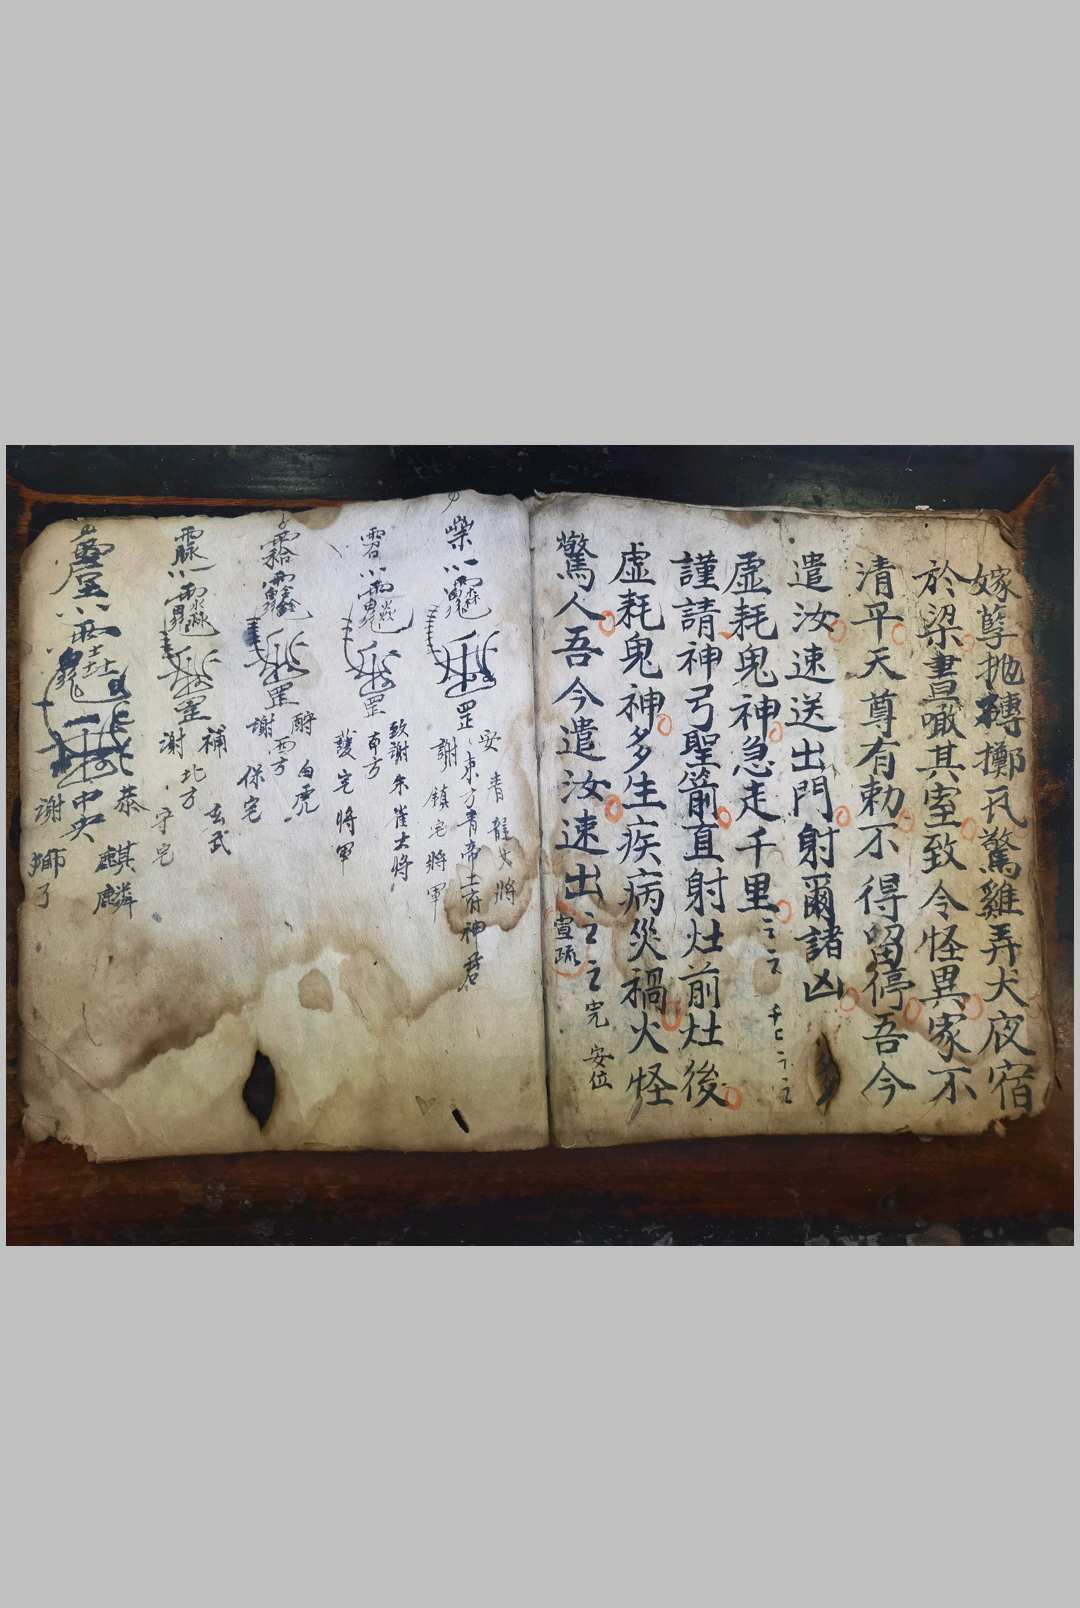 嫁孽拋磚擲瓦驚雞弄犬夜宿
於梁晝瞰其室致令怪異家不
清平天尊有勅不得留停吾今
遣汝速送出門射爾諸凶
虛耗鬼神急走千里
謹請神弓聖箭直射灶前灶後
虛耗鬼神多生疾病災禍火怪
驚人吾今遣汝速出
宣疏
完 安位
安青龍大將
東方青帝土府神君
謝鎮宅將軍
致謝朱雀大將
南方
護宅將軍
酧白虎
謝西方
保宅
補玄武
謝北方
守宅
恭麒麟
中央
謝